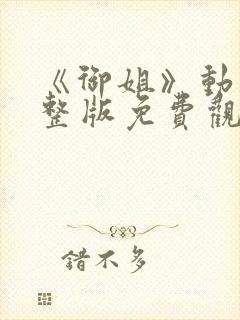 《御姐》動
整版免費觀
錯不多